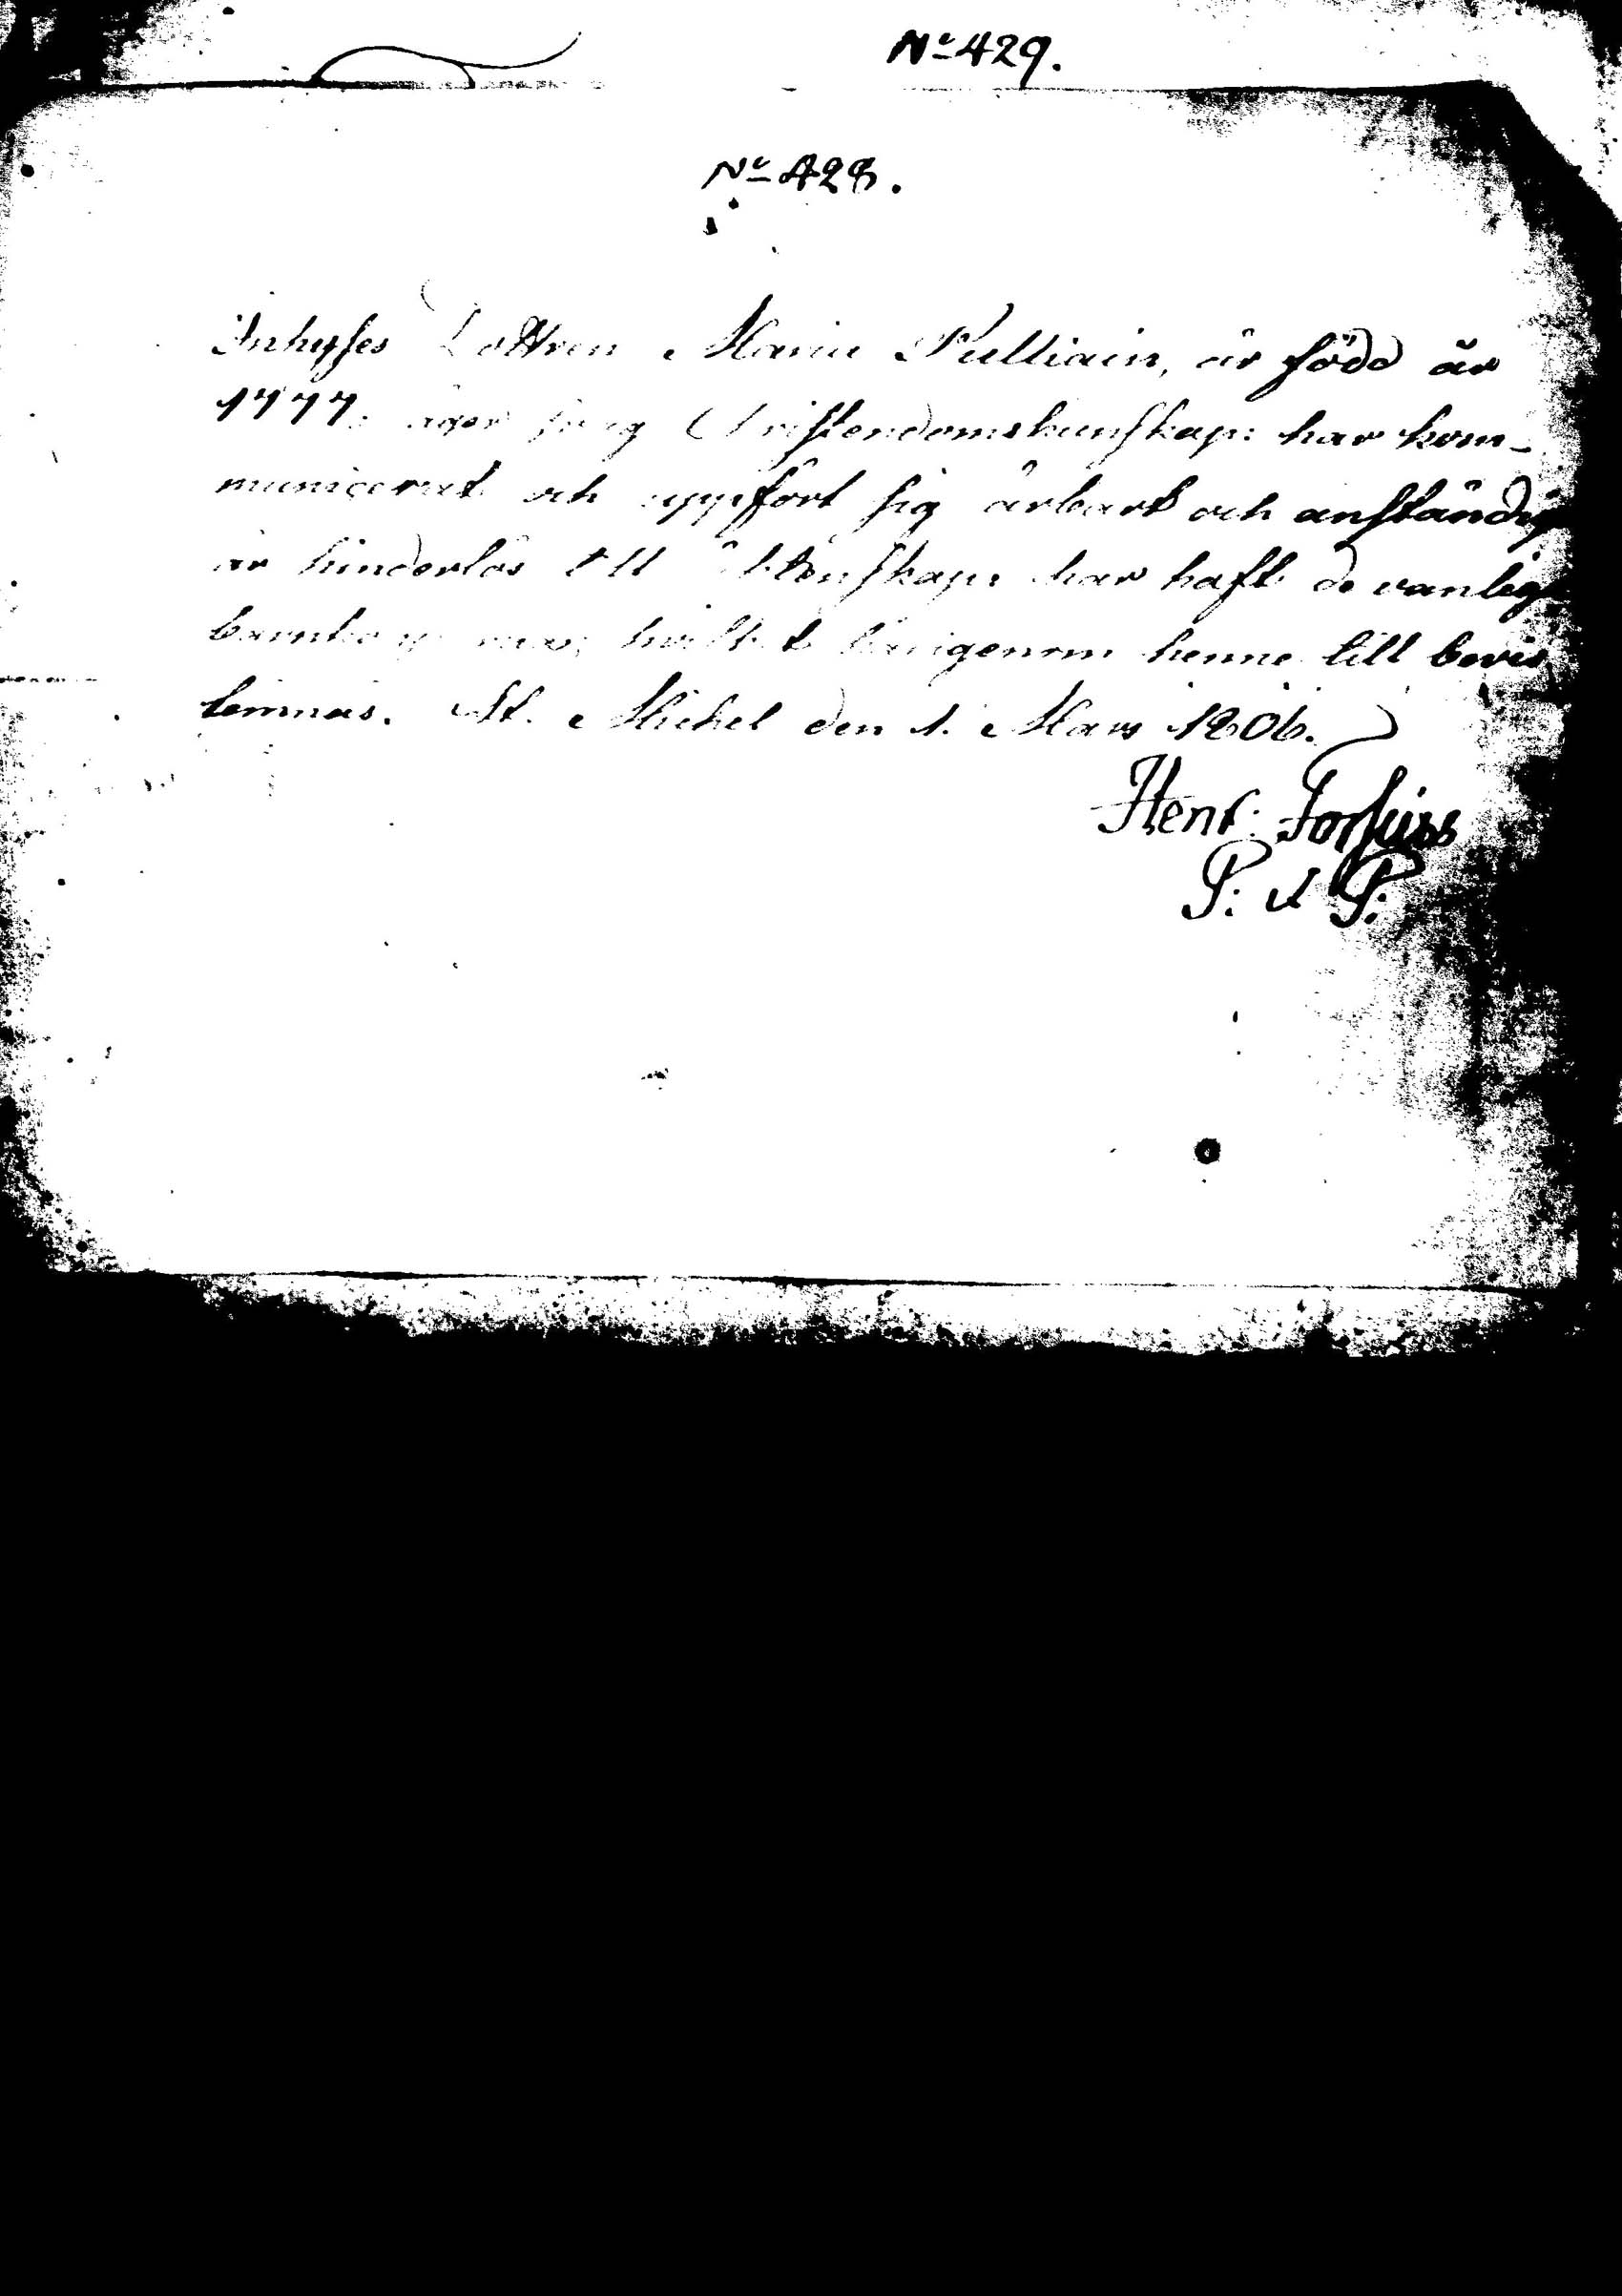 No 429.
No 428.
Inhyses Dottren Maria Pulliain, är född år
1777. äger Christendomskunskap: har kom-
municerat och uppfört sig ärbart och anständigt
är hinderlös till äktenskap: har haft de vanliga
hvilket härigenom henne till bevis
lemnas. St. Michel den 1. Mars 1806.
Henr: Forsius
P: et P: